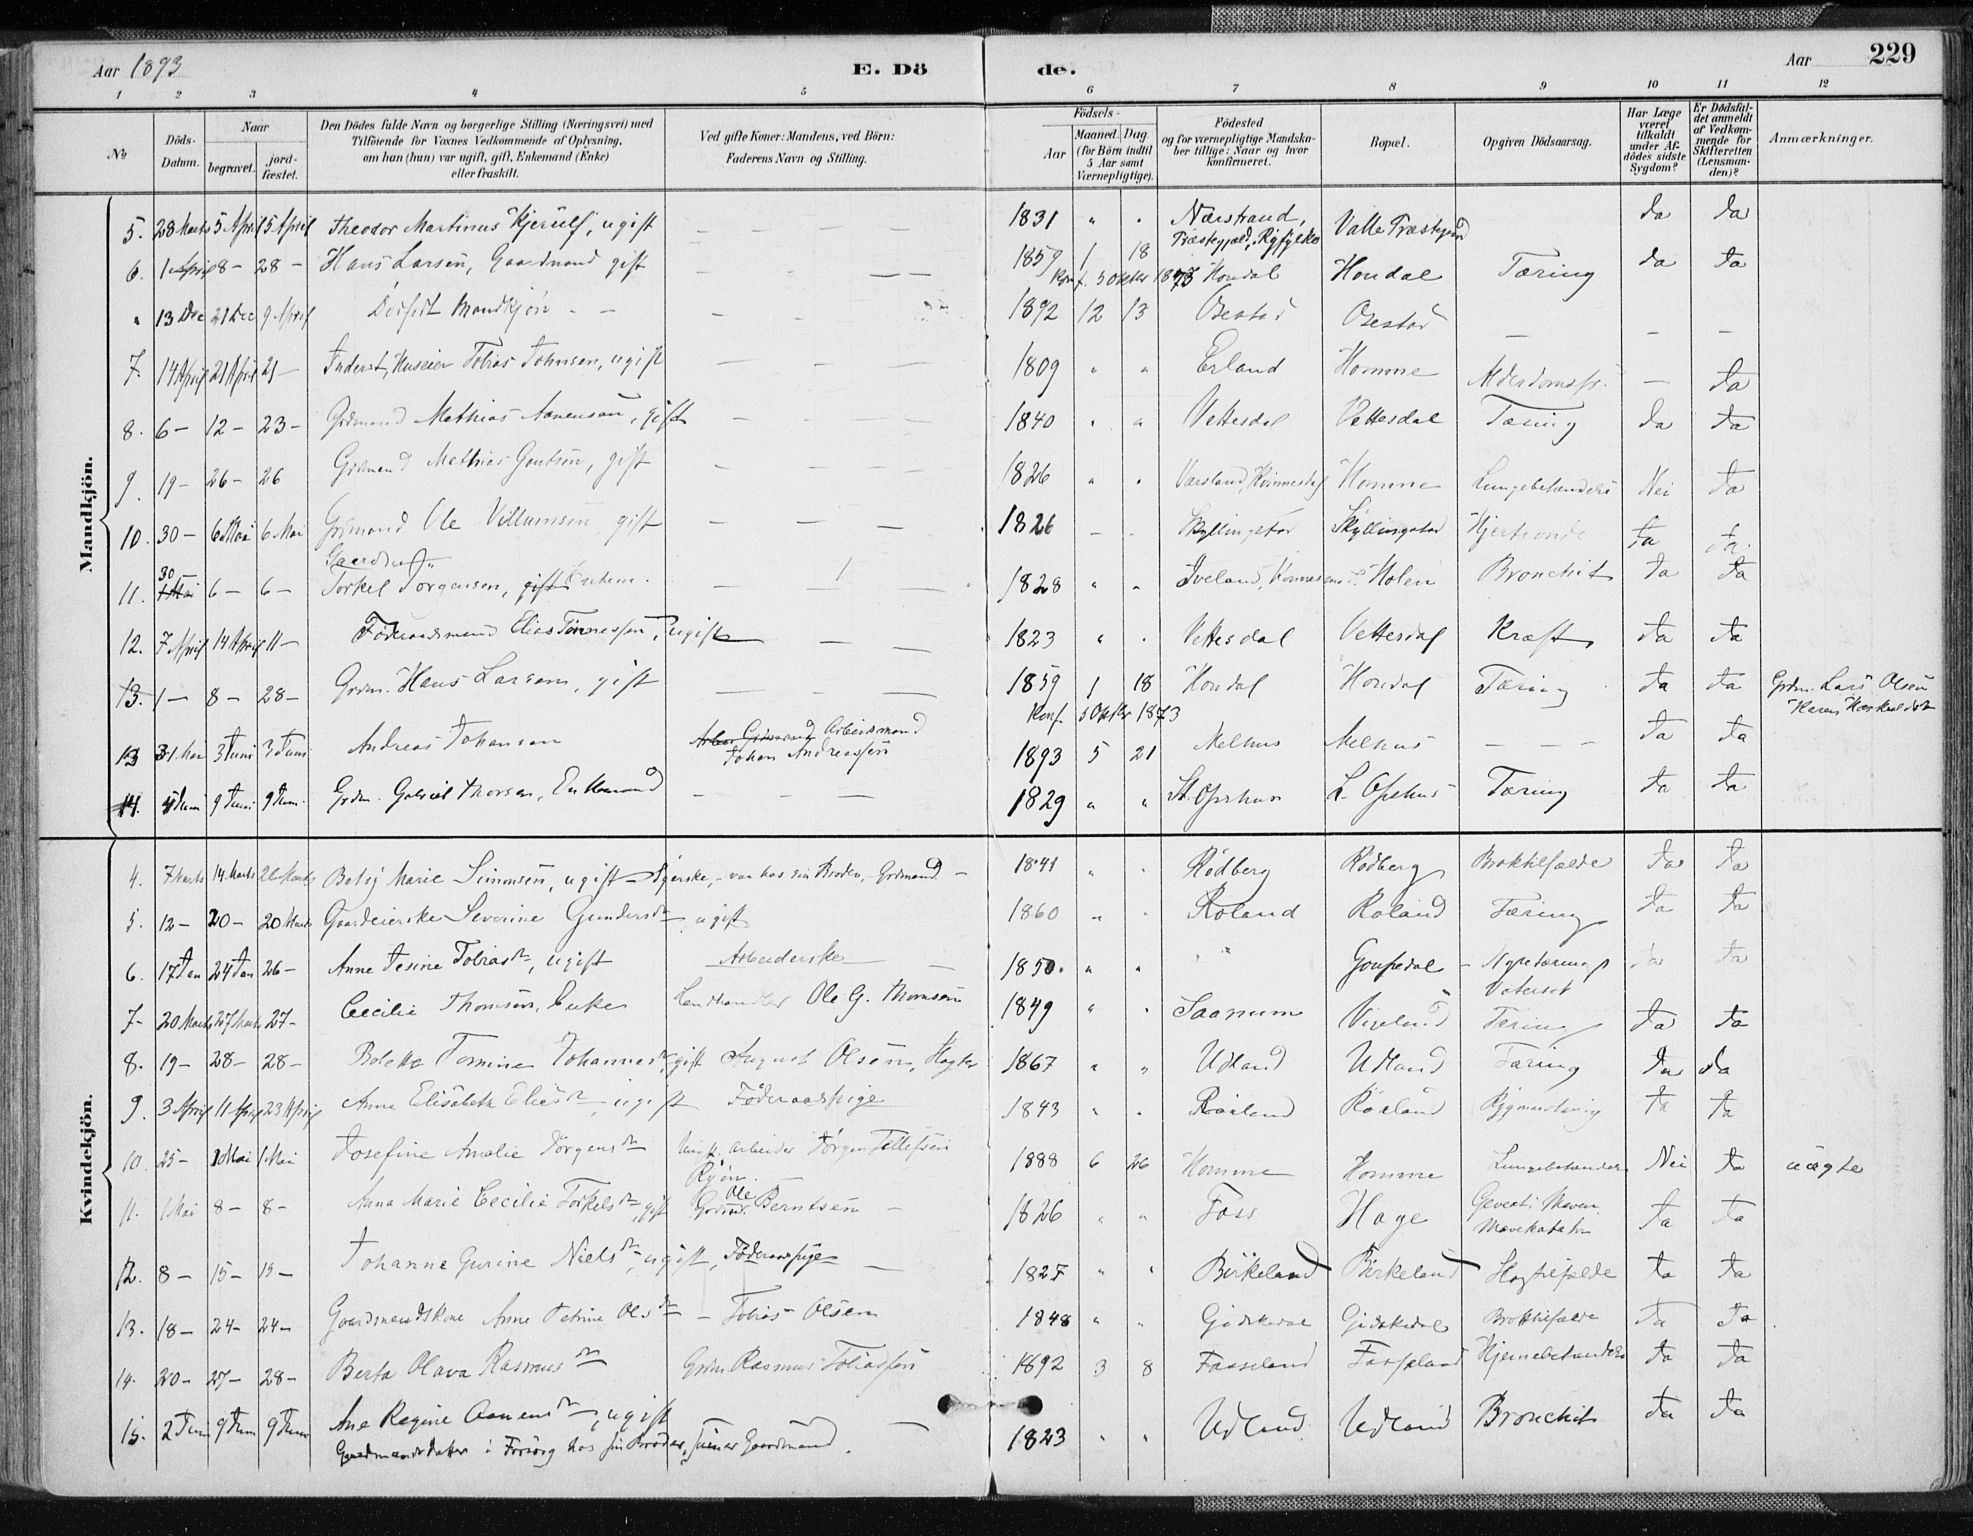 Aar 1893 E. Dö de. Aar 229
1 2 3 4 5 6 7 8 9 10 11 12
No
Döds-Datum.
Naar
begravet. jord-fæstet.
Den Dödes fulde Navn og borgerlige Stilling (Næringsvei) med
Tilföiende for Voxnes Vedkommende af Oplysning,
om han (hun) var ugift, gift, Enkemand (Enke)
eller fraskilt.
Ved gifte Koner: Mandens, ved Börn:
Faderens Navn og Stilling.
Födsels-
Aar Maaned. Dag.
(for Börn indtil
5 Aar samt
Værnepligtige).
Födested
og for værnepligtige Mandska-
ber tillige: Naar og hvor
konfirmeret.
Bopæl.
Opgiven Dödsaarsag.
Har Læge
været
tilkaldt
under Af-
dödes sidste
Sygdom?
Er Dödsfal-
det anmeldt
af Vedkom-
mende for
Skifteretten
(Lensman-
den)?
Anmærkninger.
Mandkjön.
5. 28 Marts 5 April 15 April Theodor Martinus Kjerulf, ugift — — — — 1831 " " Nærstrand, Præstegjeld, Ryfylke Valle Præstegaard Ja Ja
6. 1 April 8 – 28 – Hans Larsen, Gaardmand gift — — — 1859 1 18 Konf. 5 Oktbr 1873 Hondal Hondal Tæring Ja Ja
" 13 Dec 21 Dec 9 April Dødfødt Mandkjön — — — 1892 12 13 Osestad Osestad — — —
7. 14 April 21 April 21 – Inderst, Huseier Tobias Johnsen, ugift — — — 1809 " " Erland Homme — Ja
8. 6 – 12 – 23 – Grdmand Mathias Aanensen, gift — — — 1840 " " Vettesdal Vettesdal Tæring Ja Ja
9. 19 – 26 – 26 Grdmand Mathias Gautsen, gift — — — 1826 " " Homme Lungebetændelse Nei Ja
10. 30 – 6 Mai 6 Mai Grdmand Ole Villumsen, gift — — — 1826 – – Skyllingstad Skyllingstad Hjerteonde Ja Ja
11. 30 6 – 6 – Torkel Jørgensen, — — 1828 " " Iveland, Holen Bronchit Ja Ja
12. 7 April 14 April 11 – Föderaadsmand Elias Tønnessen, ugift — — 1823 " " Vettesdal Vettesdal Kræft Ja Ja
13. 1 – 8 – 28 – Grdm. Hans Larsen, gift — — — 1859 1 18 Konf. 5 Oktbr 1873 Hondal Hondal Tæring Ja Ja Grdm. Lars Olsen
13 31 Mai 3 Juni 3 Juni Andreas Johansen Arbeidsmand Johan Andreassen 1893 5 21 Melhus Melhus — — — Ja Ja
14. 4 Juni 9 Juni 9 Juni Grdm. Gabriel Thorsen, Enkemand — — — 1829 " " St. Opshus L. Opshus Tæring Ja Ja
Kvindekjön.
4. 7 Marts 14 Marts 26 Marts Betsy Marie Simonsen, ugift – Syerske, – var hos sin Broder, – Grdmand – 1841 " " Rødberg Rødberg Broktilfælde Ja Ja
5. 12 – 20 – 20 Marts Gaardeierske Severine Gundersdtr, ugift 1860 " " Roland Roland Tæring Ja Ja
6. 17 Jan 24 Jan 26 – Anne Jesine Tobiasdr, ugift Arbeiderske — 1850 " " " Goupedal – Nyretæring Ja Ja
7 – 20 Marts 27 Marts 27 – Cecilie Thomsen, Enke Landhandler Ole G. Thomsen 1849 " " Saanum Vigeland Tæring Ja Ja
8. 19 – 28 – 28 – Bolette Tomine Johannesdr, gift August Olsen, 1867 " " Udland Udland Tæring Ja Ja
9. 3 April 11 April 23 April Anne Elisabeth Eliasdr, ugift Föderaadspige 1843 " " Røiland Røiland Rygmarvtæring Ja Ja
10. 25 – 1 Mai 1 Mai Josefine Amalie Jørgensdr Ungk. arbeider Jørgen Tellefsen 1888 6 26 Homme Homme Lungebetændelse Nei Ja uægte
11. 1 Mai 8 – 8 – Anna Marie Cecilie Torkelsdr, gift Grdmd. Ole Berntsen – 1826 " " Foss Hage Mavekatahr Ja Ja
12. 8 – 15 – 15 – Johanne Gurine Nielsdr – ugift, Föderaadspige — 1827 " " Birkeland Birkeland Ja Ja
13. 18 – 24 – 24 – Gaardmandskone Anne Petrine Olsdr – Tobias Olsen 1848 " " Gidskedal Gidskedal Broktilfælde Ja Ja
14. 20 – 27 – 28 – Berta Olava Rasmusdr Grdm. Rasmus Tobiassen 1892 3 8 Faaseland Faaseland Hjernebetændelse Ja Ja
15. 2 Juni 9 Juni 9 Juni Ane Regine Aanensdr, ugift — 1823 " " Udland Udland Bronchit Ja Ja
Gaardmandsdatter i Forsörg hos sin Broder, Gaardmand.